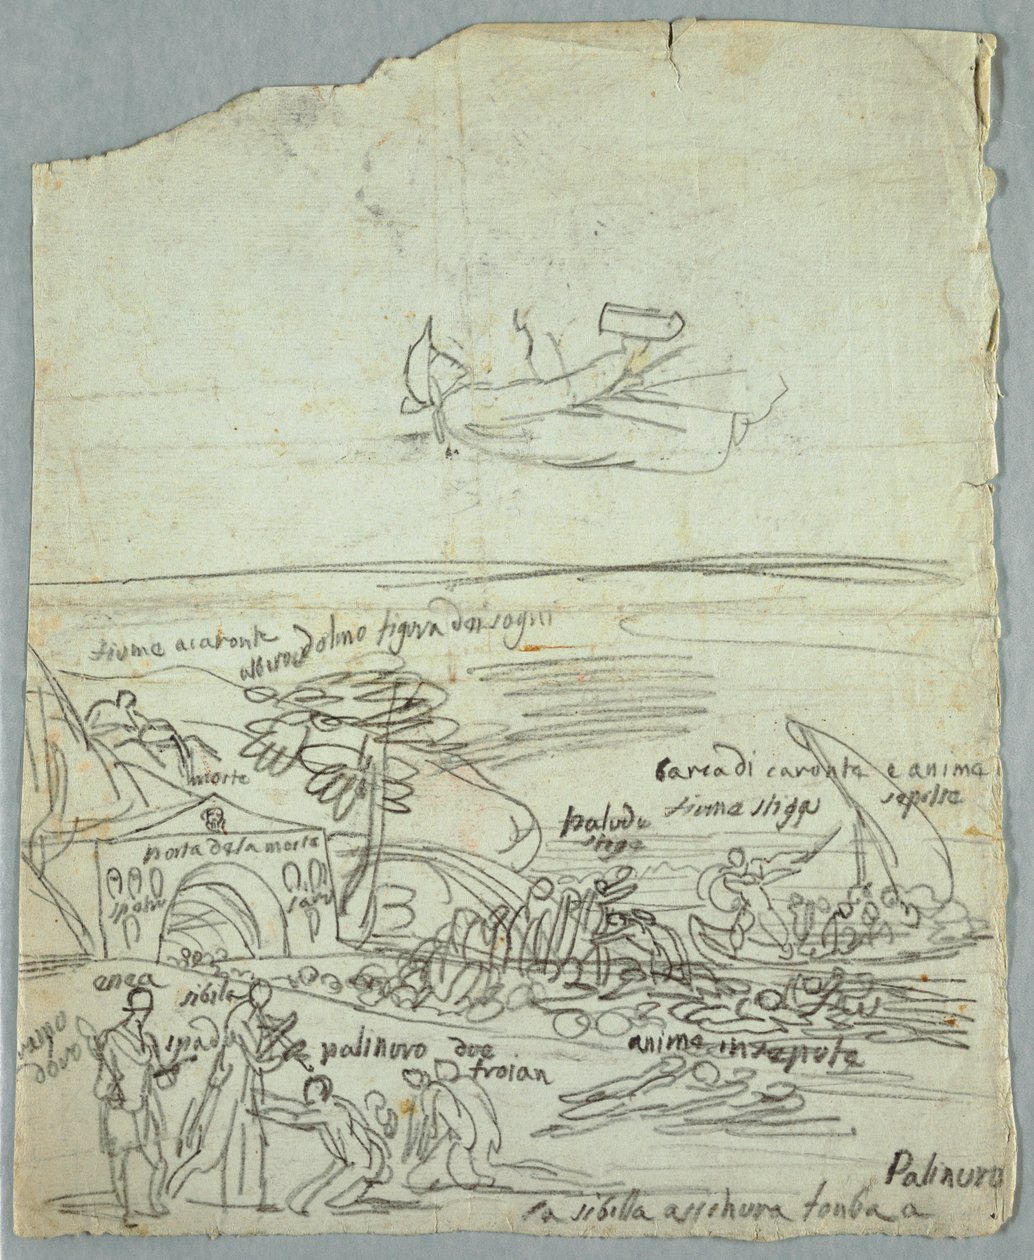 fiume acaronte
albero dolmo figura dei sogni
morte
porta de la morte
barca di caronte e anime
sepolte
fiume stige
palude
stige
enea
sibila
ramo
doro
spada
palinuro due
troian
anime insepolte
Palinuro
la sibilla assihura tonba a